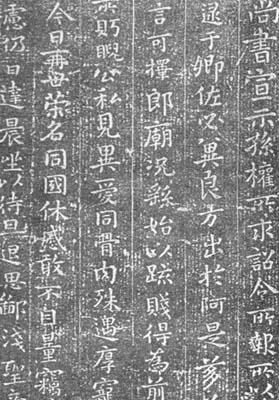 尚書宣示孫權所求詔令所報所以
逮于卿佐必冀良方出於阿是芻
言可擇郎廟況繇始以疏賤得為前
眄睨公私見異愛同骨肉殊遇厚寵
今日再世榮名同國休慼敢不自量竊
慮仍日達晨坐以待旦退思鄙淺聖